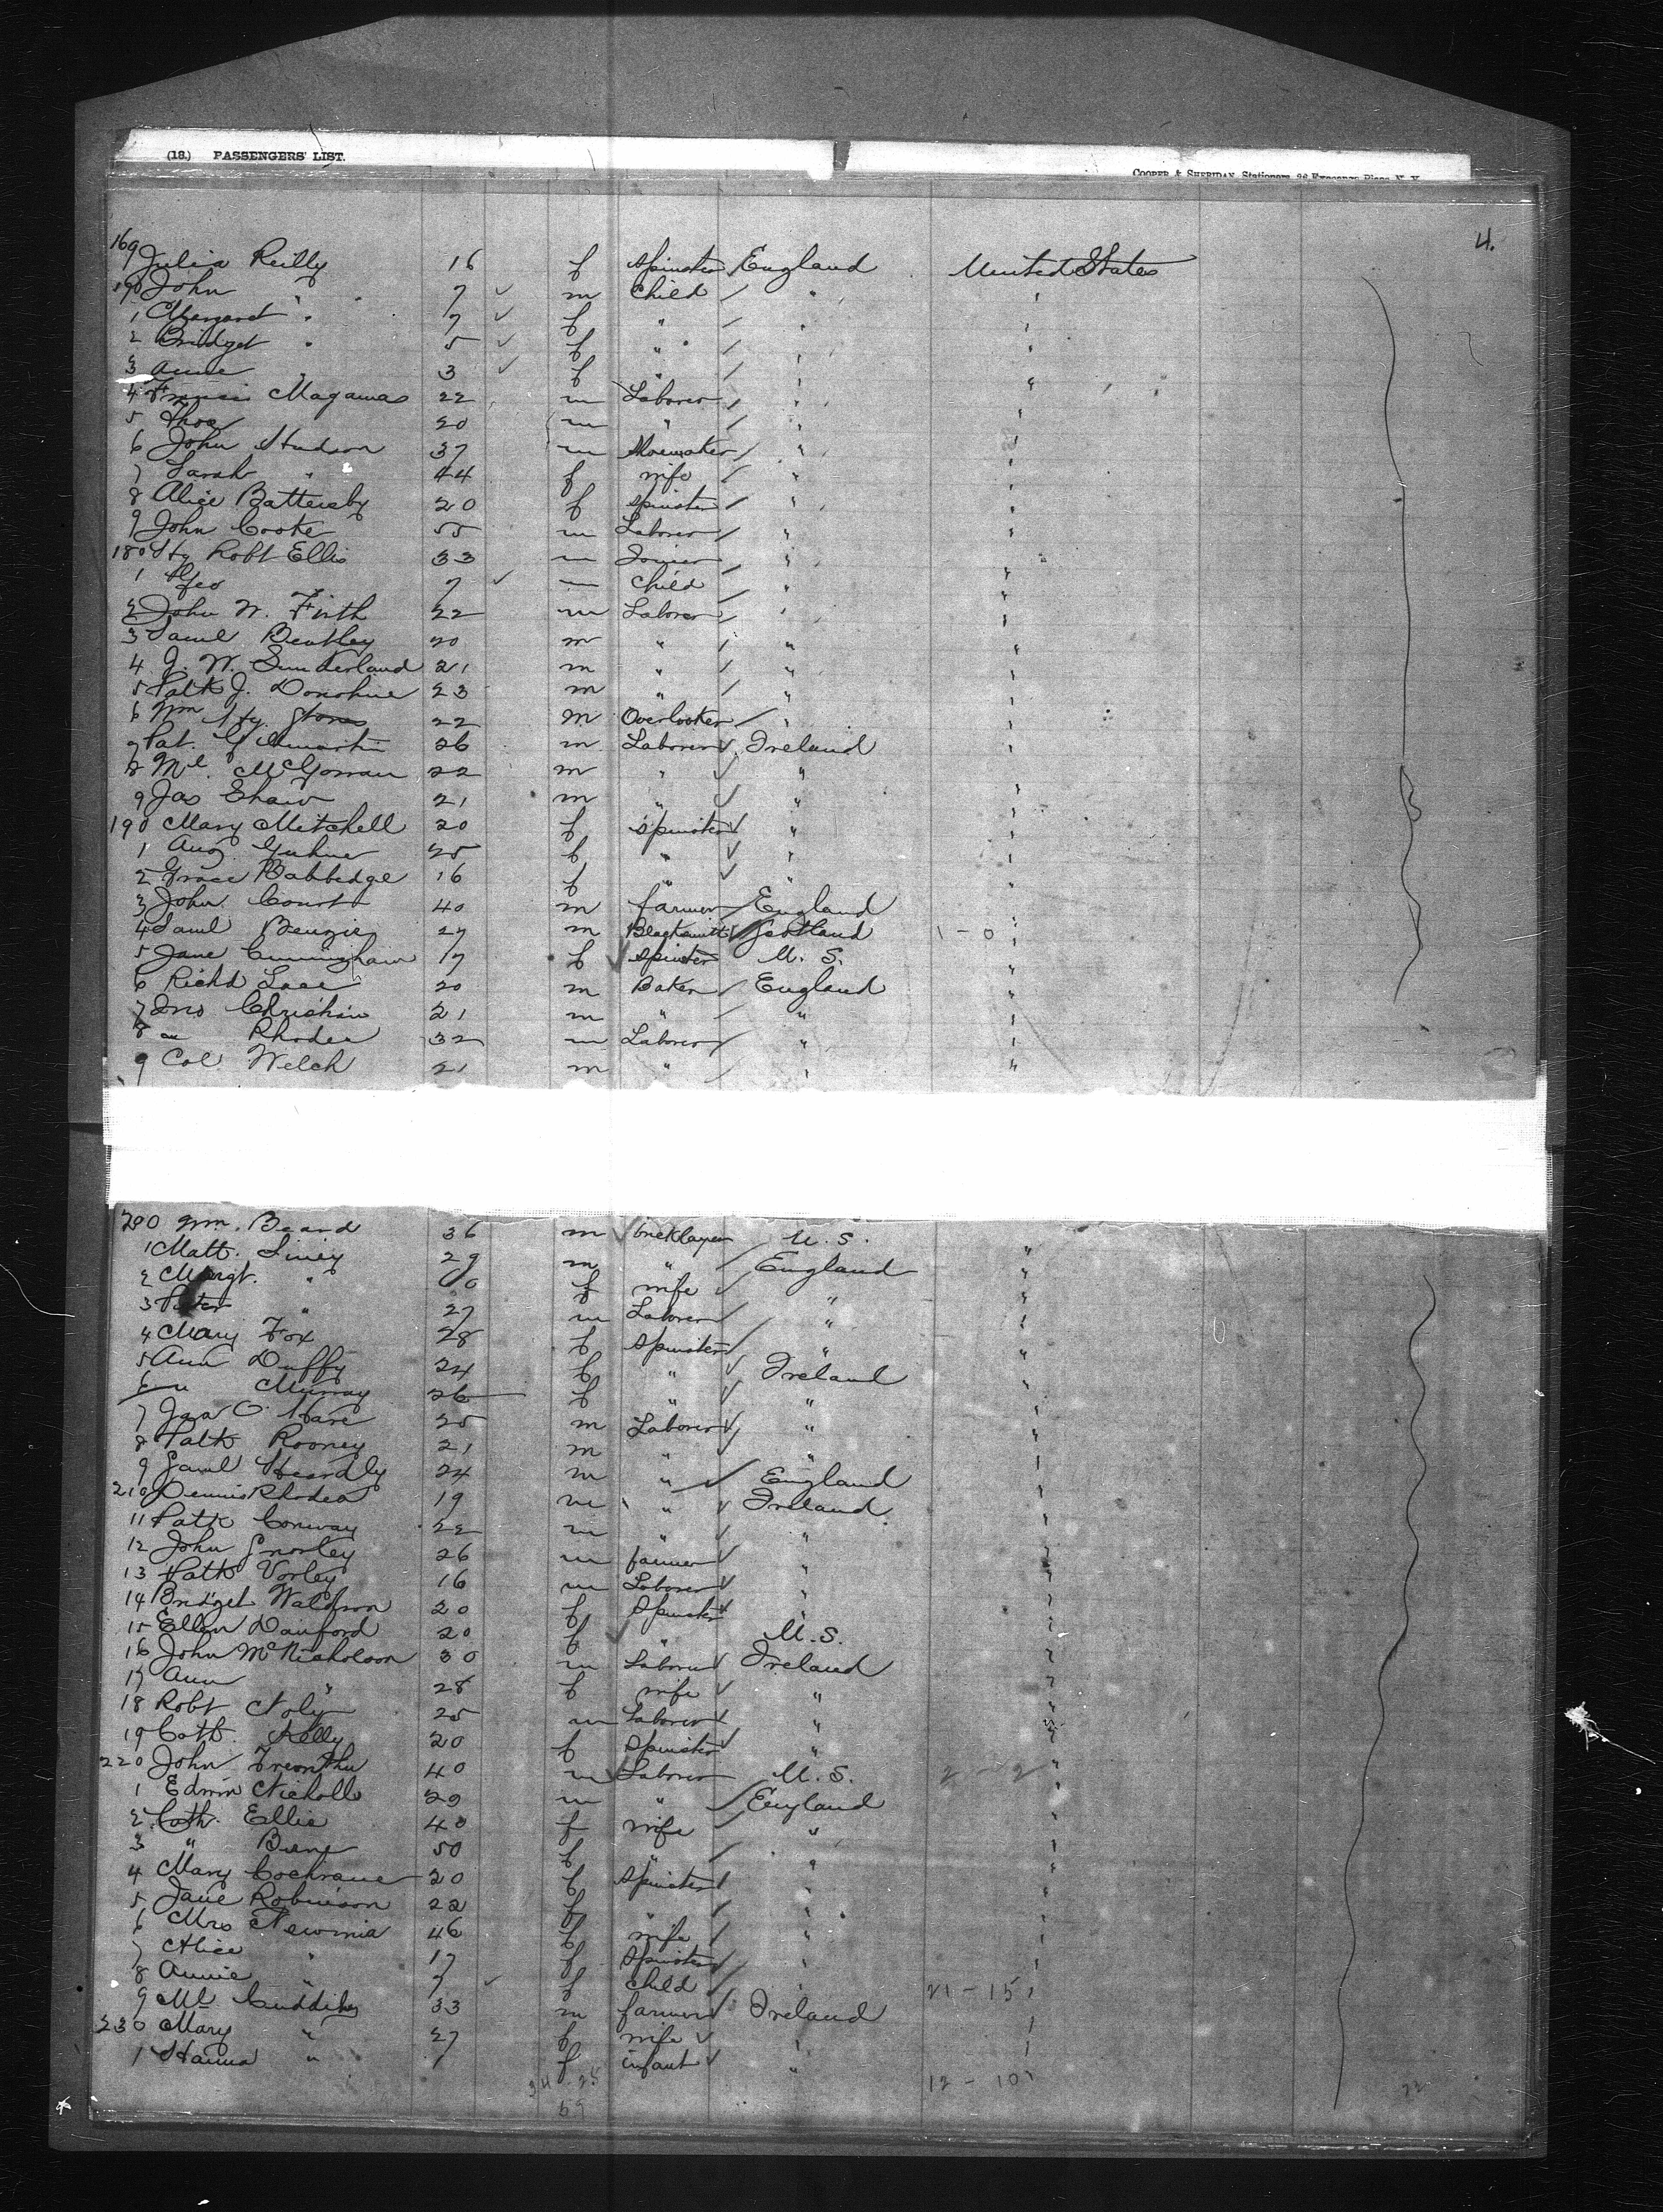 (18.) PASSENGERS' LIST.
COOPER & SHERIDAN, Stationers, 26 Exchange Place, N. Y.
4.
169 Julia Reilly 16 f Spinster England United States
170 John " 7 m Child " "
1 Margaret " 7 f " " "
2 Bridget " 5 f " " "
3 Anne " 3 f " " "
4 Francis 22 m Laborer " "
5 Thos 20 m " " "
6 John Hudson 37 m Shoemaker " "
7 Sarah " 44 f wife " "
8 Alice Battersby 20 f Spinster " "
9 John Cooke 55 m Laborer " "
180 Hy Robt Ellis 33 m Joiner " "
1 Geo 7 m Child " "
2 John W. Firth 22 m Laborer " "
3 Saml Bentley 20 m " " "
4 J. W. Sunderland 21 m " " "
5 Patk J. Donohue 23 m " " "
6 Wm Hy. Stones 22 m Overlooker " "
7 Pat. Gilmartin 26 m Laborer Ireland "
8 Ml. McGowan 22 m " " "
9 Jas Shaw 21 m " " "
190 Mary Mitchell 20 f Spinster " "
1 25 f " " "
2 Grace Babbedge 16 f " " "
3 John Court 40 m farmer England "
4 Saml Benzie 27 m Blacksmith Scotland 1-0 "
5 Jane Cunningham 17 f Spinster U. S. "
6 Richd Lace 20 m Baker England "
7 Jno Christian 21 m " " "
8 " Rhodes 32 m Laborer " "
9 Col Welch 21 m " " "
200 Wm. Beard 36 m bricklayer U. S. "
1 Matt. Liney 29 m " England "
2 Margt. " f wife " "
3 Peter " 27 m Laborer " "
4 Mary Fox 28 f Spinster " "
5 Ann Duffy 24 f " Ireland "
6 " Murray 26 f " " "
7 Jas O'Hare 25 m Laborer " "
8 Patk Rooney 21 m " " "
9 Saml 24 m " England "
210 Dennis Rhodes 19 m " Ireland "
11 Patk Conway 22 m " " "
12 John 26 m farmer " "
13 Patk Vorley 16 m Laborer " "
14 Bridget Waldron 20 f Spinster " "
15 Ellen Danford 20 f " U. S. "
16 John McNicholson 30 m Laborer Ireland "
17 Ann " 28 f wife " "
18 Robt 25 m Laborer " "
19 Cath. Kelly 20 f Spinster " "
220 John 40 m Laborer U. S. 2-2 "
1 Edwin Nicholls 29 m " England "
2 Cath. Ellis 40 f wife " "
3 " 50 f " " "
4 Mary Cochrane 20 f Spinster " "
5 Jane Robinson 22 f " " "
6 Mrs 46 f wife " "
7 Alice " 17 f Spinster " "
8 Annie " 7 f Child " 21-15 "
9 Ml Cuddihy 33 m farmer Ireland "
230 Mary " 27 f wife " "
1 Hanna " 1 f infant " "
34 25 12-10
59